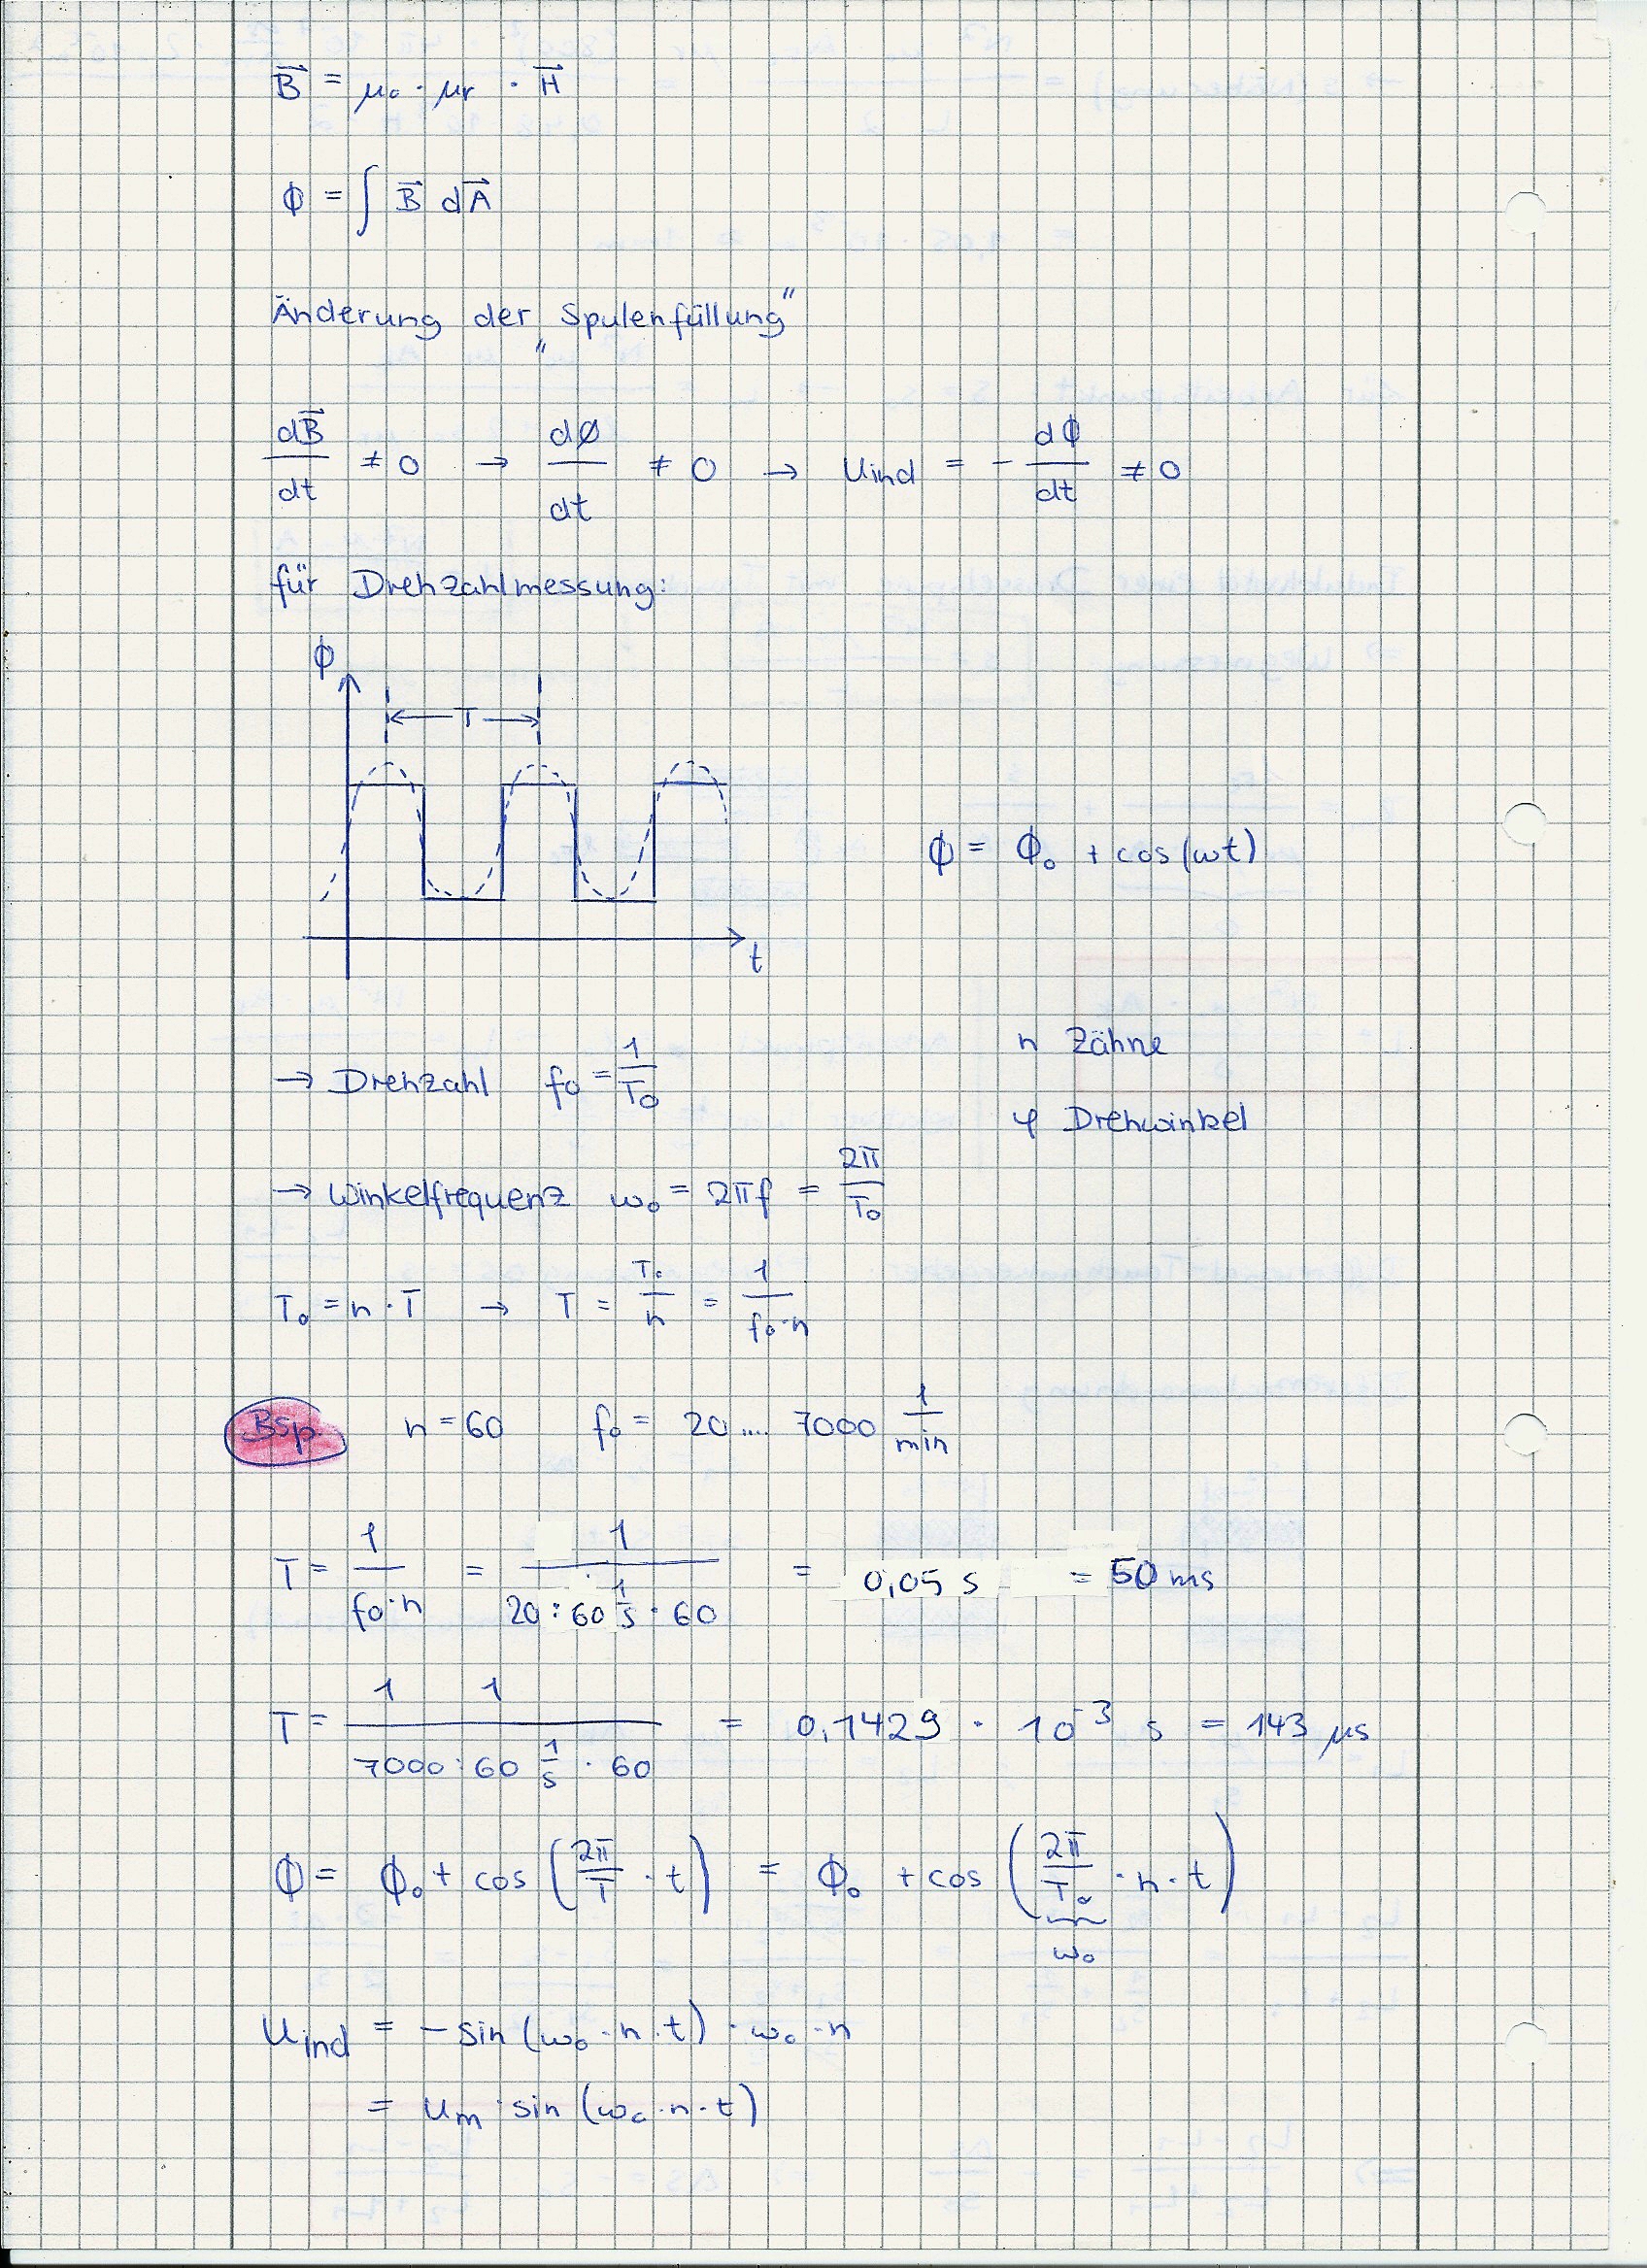 B⃗ = μ₀ · μr · H⃗
ϕ = ∫ B⃗ dA⃗
Änderung der „Spulenfüllung"
dB⃗/dt ≠ 0 → dØ/dt ≠ 0 → Uind = - dϕ/dt ≠ 0
für Drehzahlmessung:
ϕ
T
ϕ = ϕ₀ + cos(ωt)
t
n Zähne
→ Drehzahl f₀ = 1/T₀
φ Drehwinkel
→ Winkelfrequenz ω₀ = 2πf = 2π/T₀
T₀ = n · T → T = T₀/n = 1/(f₀·n)
Bsp. n = 60 f₀ = 20.... 7000 1/min
T = 1/(f₀·n) = 1/(20 : 60 1/s · 60) = 0,05 s = 50 ms
T = 1 1/(7000 : 60 1/s · 60) = 0,1429 · 10⁻³ s = 143 μs
ϕ = ϕ₀ + cos (2π/T · t) = ϕ₀ + cos (2π/T₀ · n · t)
ω₀
Uind = - sin (ω₀ · n · t) · ω₀ · n
= um · sin (ω₀ · n · t)